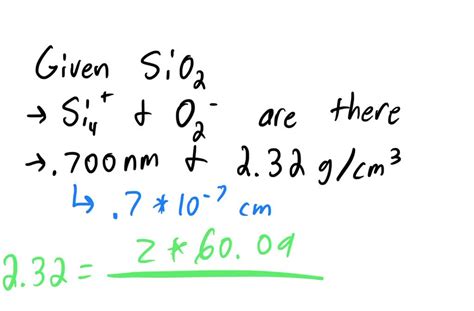 Given SiO₂
→ Si₄⁺ & O₂⁻ are there
→ .700 nm & 2.32 g/cm³
↳ .7 * 10⁻⁷ cm
2.32 = 2 * 60.09